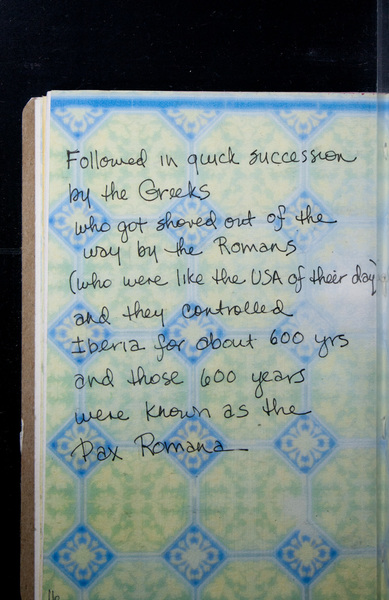 Followed in quick succession
by the Greeks
who got shoved out of the
way by the Romans
(who were like the USA of their day)
and they controlled
Iberia for about 600 yrs
and those 600 years
were known as the
Pax Romana
16